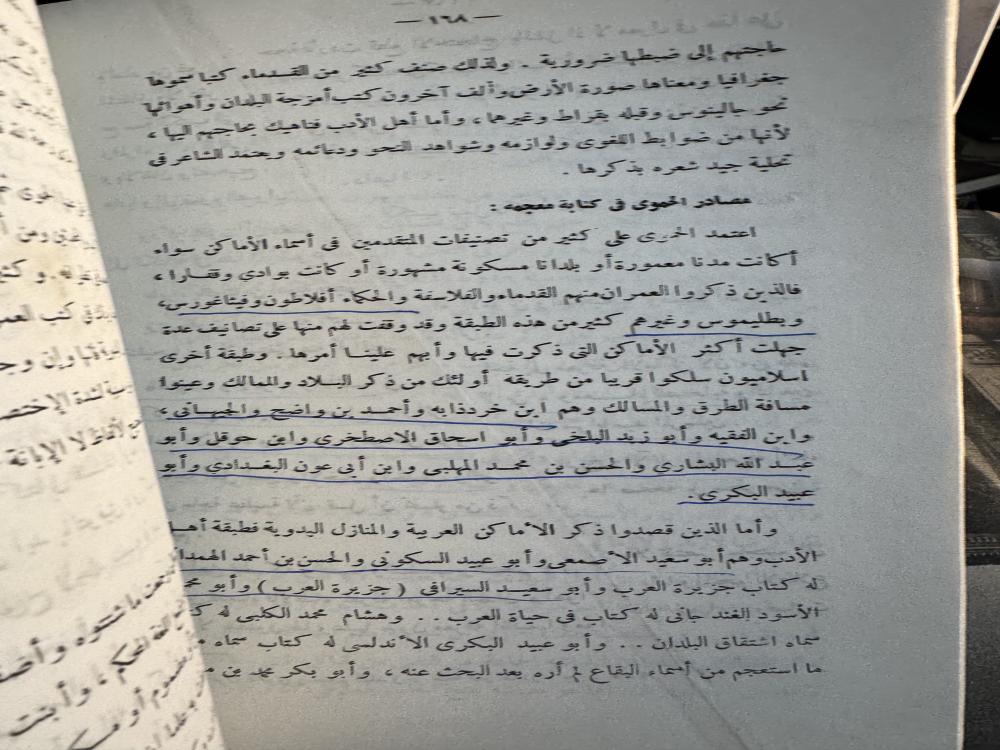 — ١٦٨ —
حاجتهم إلى ضبطها ضرورية . ولذلك صنف كثير من القدماء كتبا سموها
جغرافيا ومعناها صورة الأرض وألف آخرون كتب أمزجة البلدان وأهوائها
نحو جالينوس وقبله بقراط وغيرها ، وأما أهل الأدب فناهيك بحاجهم اليها ،
لأنها من ضوابط اللغوى ولوازمه وشواهد النحو ودعائمه ويعتمد الشاعر فى
تحلية جيد شعره بذكرها .
مصادر الحموى فى كتابة معجمه :
اعتمد الحموى على كثير من تصنيفات المتقدمين فى أسماء الأماكن سواء
أكانت مدنا معمورة أو بلدانا مسكونة مشهورة أو كانت بوادي وقفارا ،
فالذين ذكروا العمران منهم القدماء والفلاسفة والحكماء أفلاطون وفيثاغورس،
وبطليموس وغيرهم كثير من هذه الطبقة وقد وقفت لهم منها على تصانيف عدة
جهلت أكثر الأماكن التى ذكرت فيها وأبهم علينا أمرها . وطبقة أخرى
اسلاميون سلكوا قريبا من طريقه أولئك من ذكر البلاد والممالك وعينوا
مسافة الطرق والمسالك وهم ابن خردذابه وأحمد بن واضح والجيهانى ،
وابن الفقيه وأبو زيد البلخى وأبو اسحاق الاصطخرى وابن حوقل وأبو
عبد الله البشارى والحسن بن محمد المهلبى وابن أبى عون البغدادي وأبو
عبيد البكرى .
وأما الذين قصدوا ذكر الأماكن العربية والمنازل البدوية فطبقة
الأدب وهم أبو سعيد الأصمعى وأبو عبيد السكونى والحسن بن أحمد
له كتاب جزيرة العرب وأبو سعيد السيرافى ( جزيرة العرب ) وأبو
الأسود الغند جانى له كتاب فى حياة العرب . . وهشام محمد الكلبى له
سماه اشتقاق البلدان . . وأبو عبيد البكرى الأندلسى له كتاب سماه
ما استعجم من أسماء البقاع لم أره بعد البحث عنه ، وأبو بكر محمد بن